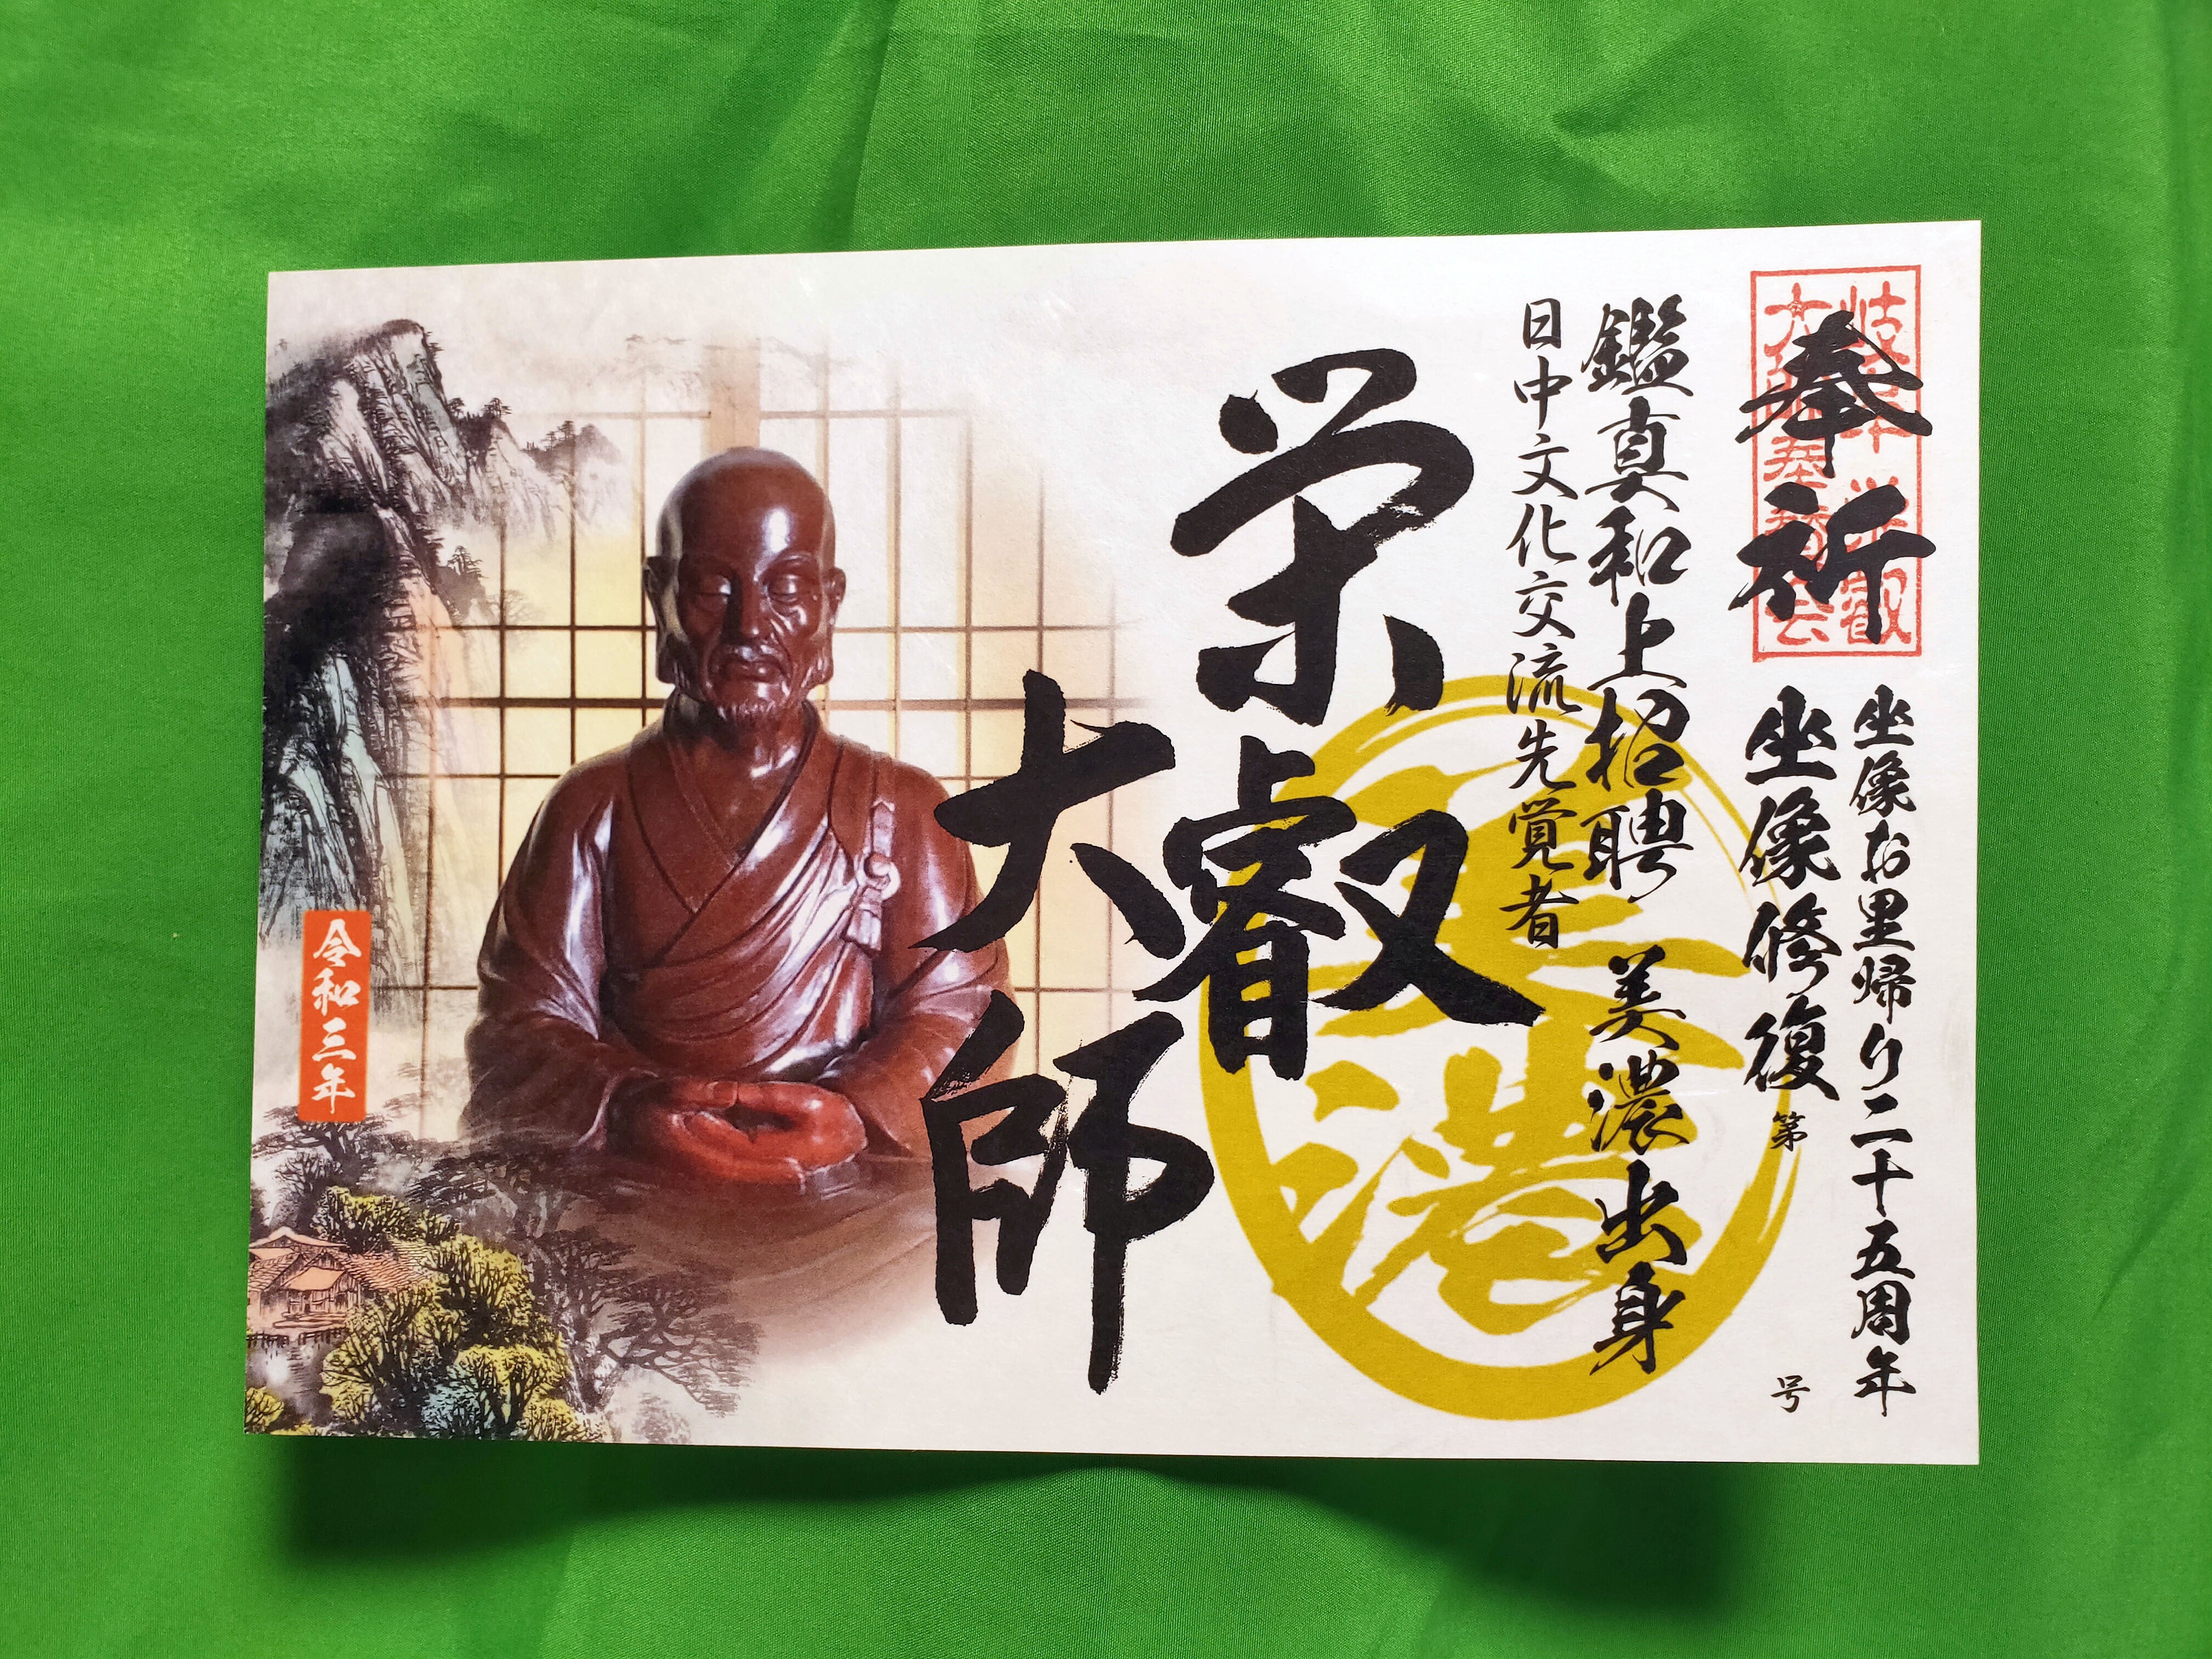 奉祈
坐像お里帰り二十五周年
坐像修復
第 号
鑑真和上招聘 美濃出身
日中文化交流先覚者
栄叡
大師
港
令和三年